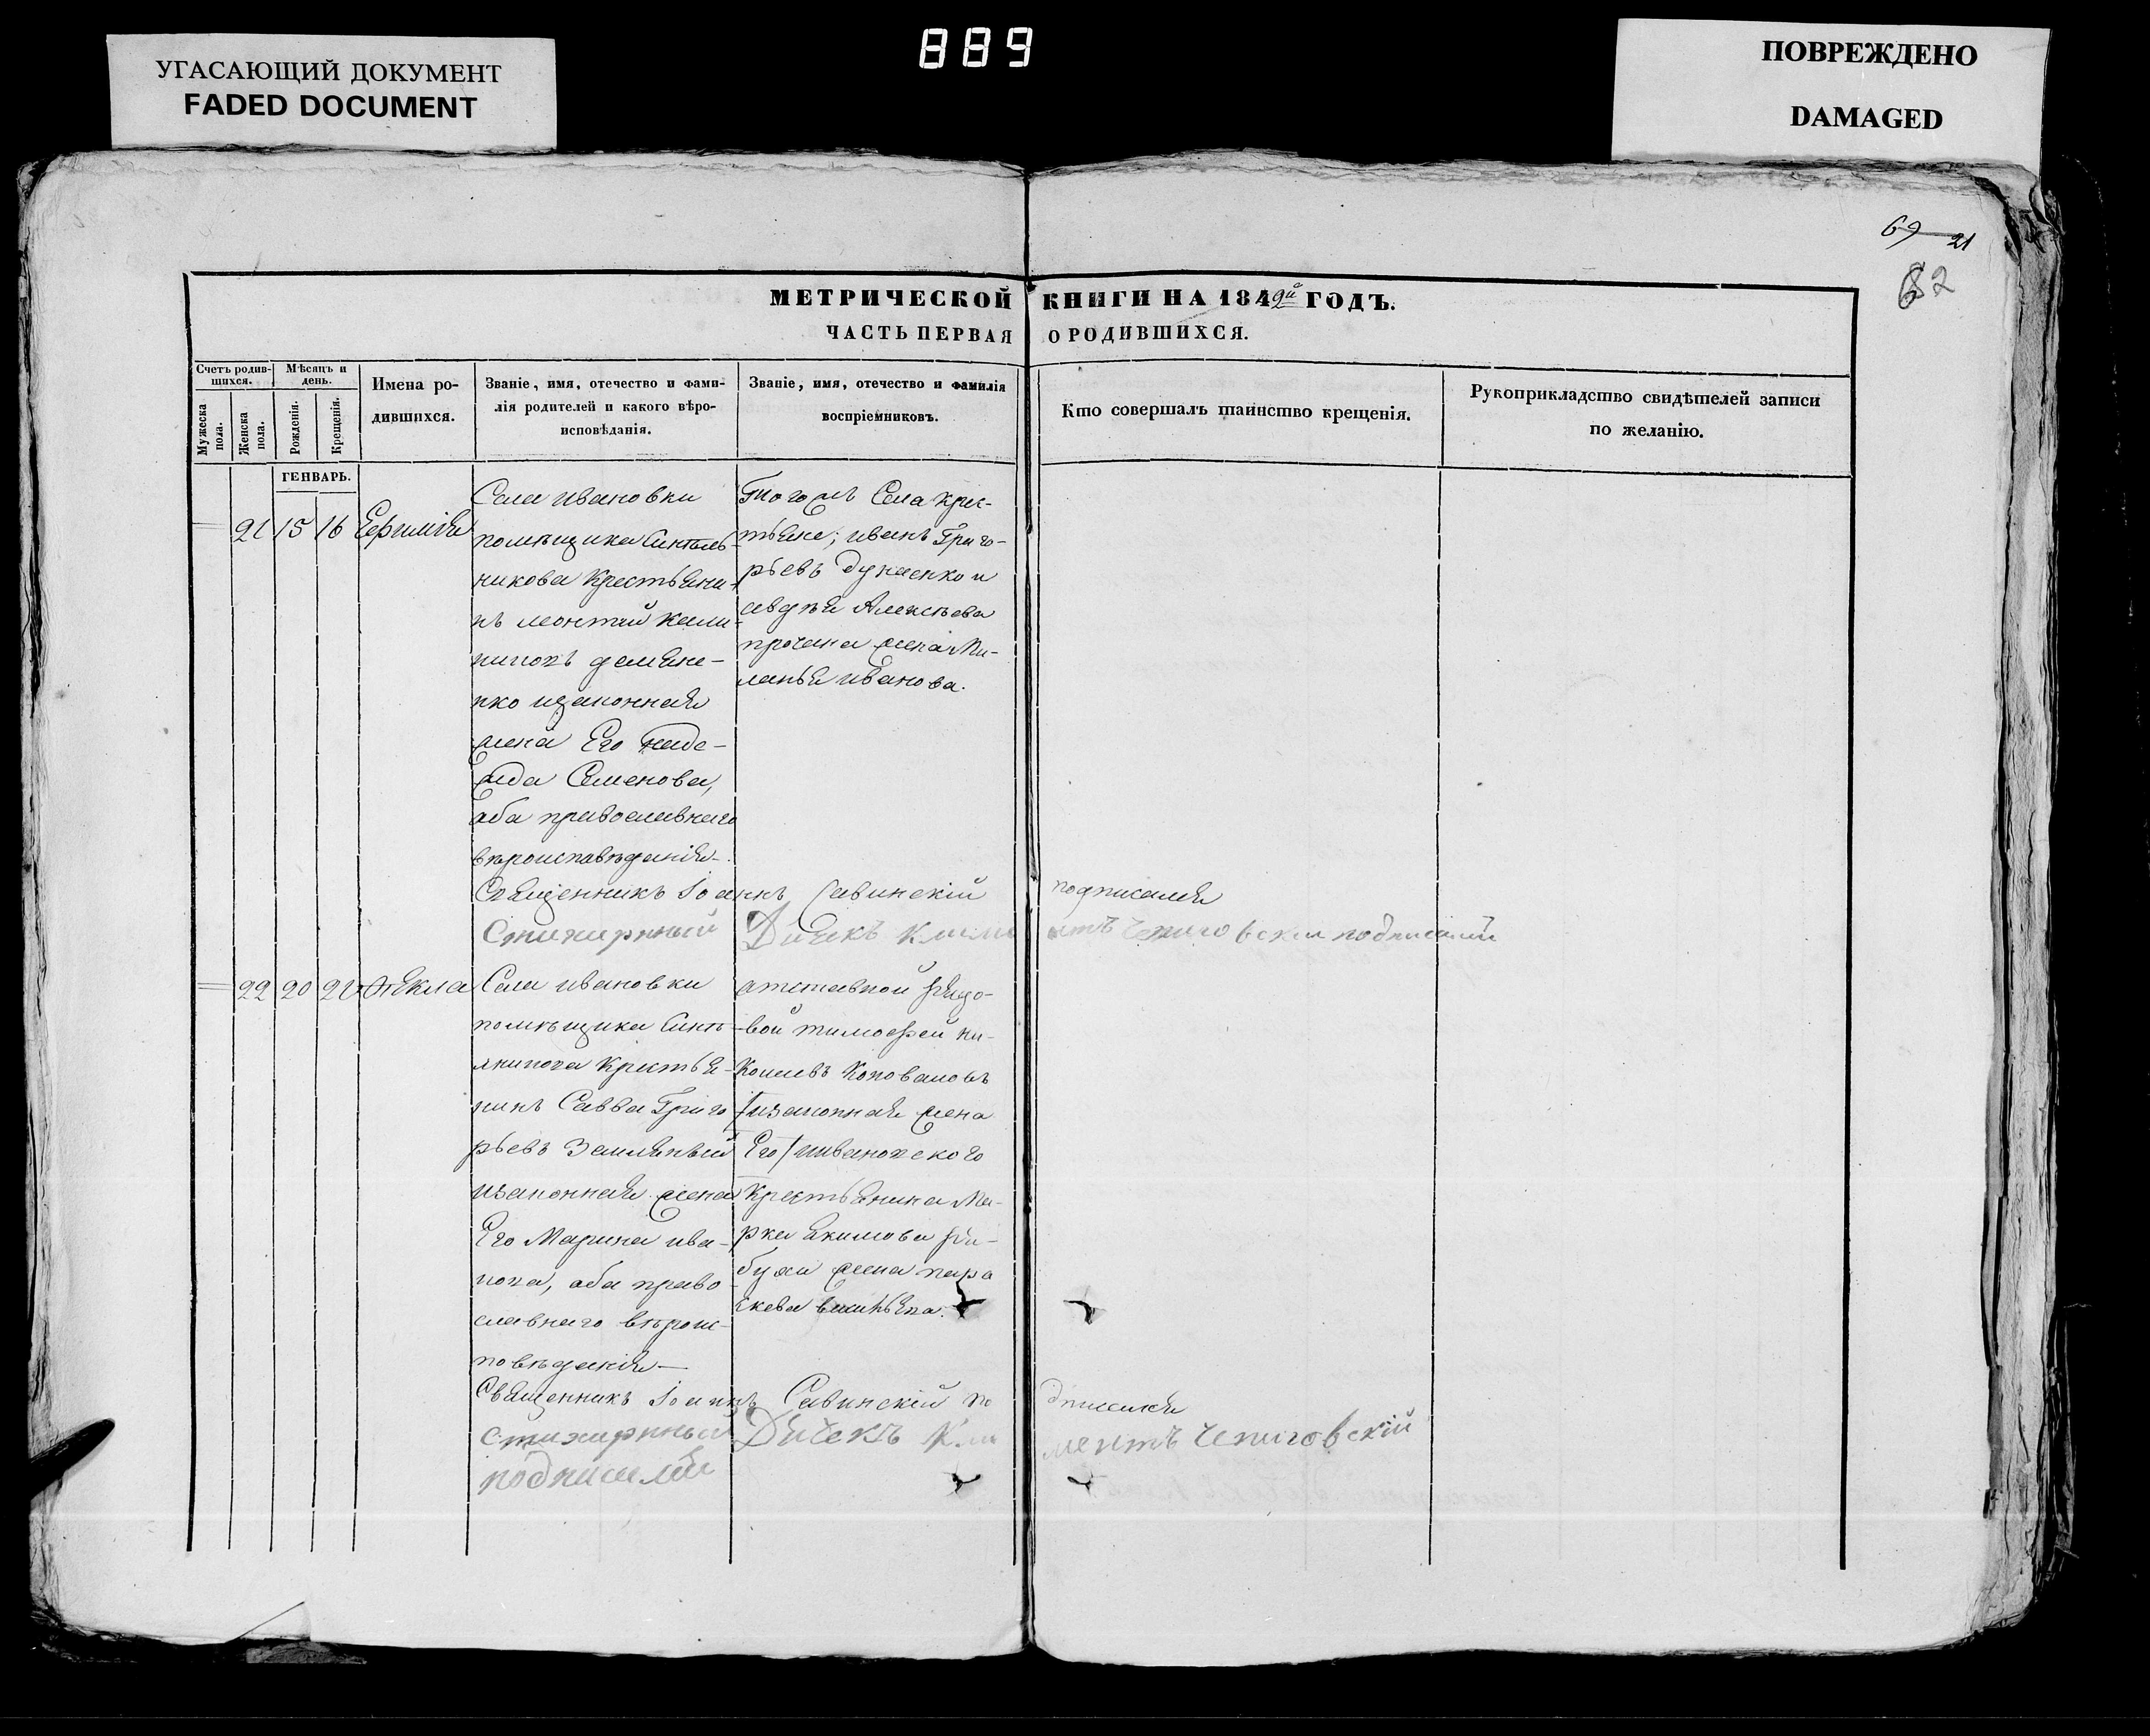 889
УГАСАЮЩИЙ ДОКУМЕНТ
FADED DOCUMENT
ПОВРЕЖДЕНО
DAMAGED
69 21
62
МЕТРИЧЕСКОЙ КНИГИ НА 1849й ГОДЪ.
ЧАСТЬ ПЕРВАЯ О РОДИВШИХСЯ.
Счетъ родив-
шихся.
Мужеска
пола.
Женска
пола.
Мѣсяцъ и
день.
Рожденія.
Крещенія.
Имена ро-
дившихся.
Званіе, имя, отечество и фами-
лія родителей и какого вѣро-
исповѣданія.
Званіе, имя, отечество и фамилія
воспріемниковъ.
Кто совершалъ таинство крещенія.
Рукоприкладство свидѣтелей записи
по желанію.
ГЕНВАРЬ.
21 15 16 Ефимія
Села ивановки
помѣщика Синель-
никова Крестьяни-
нъ леонтий
демяне-
нко изаконная
жена Его Наде-
жда Семенова,
оба православнаго
вѣроисповѣданія
Тогожъ Села крес-
тьяне; иванъ Григо-
рьевъ Дунаенко и
авдѣя Алексѣева
жена Ма-
ланья иванова.
Священникъ Іоаннъ Савинскій подписался
Стихирный Дьячекъ подписался
22 20 20 Ѳекла
Села ивановки
помѣщика
Крестья-
нинъ Савва Григо
рьевъ
изаконная жена
Его Марина ива-
нова, оба право
славнаго вѣроис-
повѣданія
отставной рядо-
вой тимофей ни-
Коноваловъ
/изаконная жена
Его/ ивановского
Крестьянина Ма-
рка Екимова
жена пара
скева
Священникъ Іоаннъ Савинскій подписался
стихирный Дячекъ Климентъ Чепиговскій
подписался